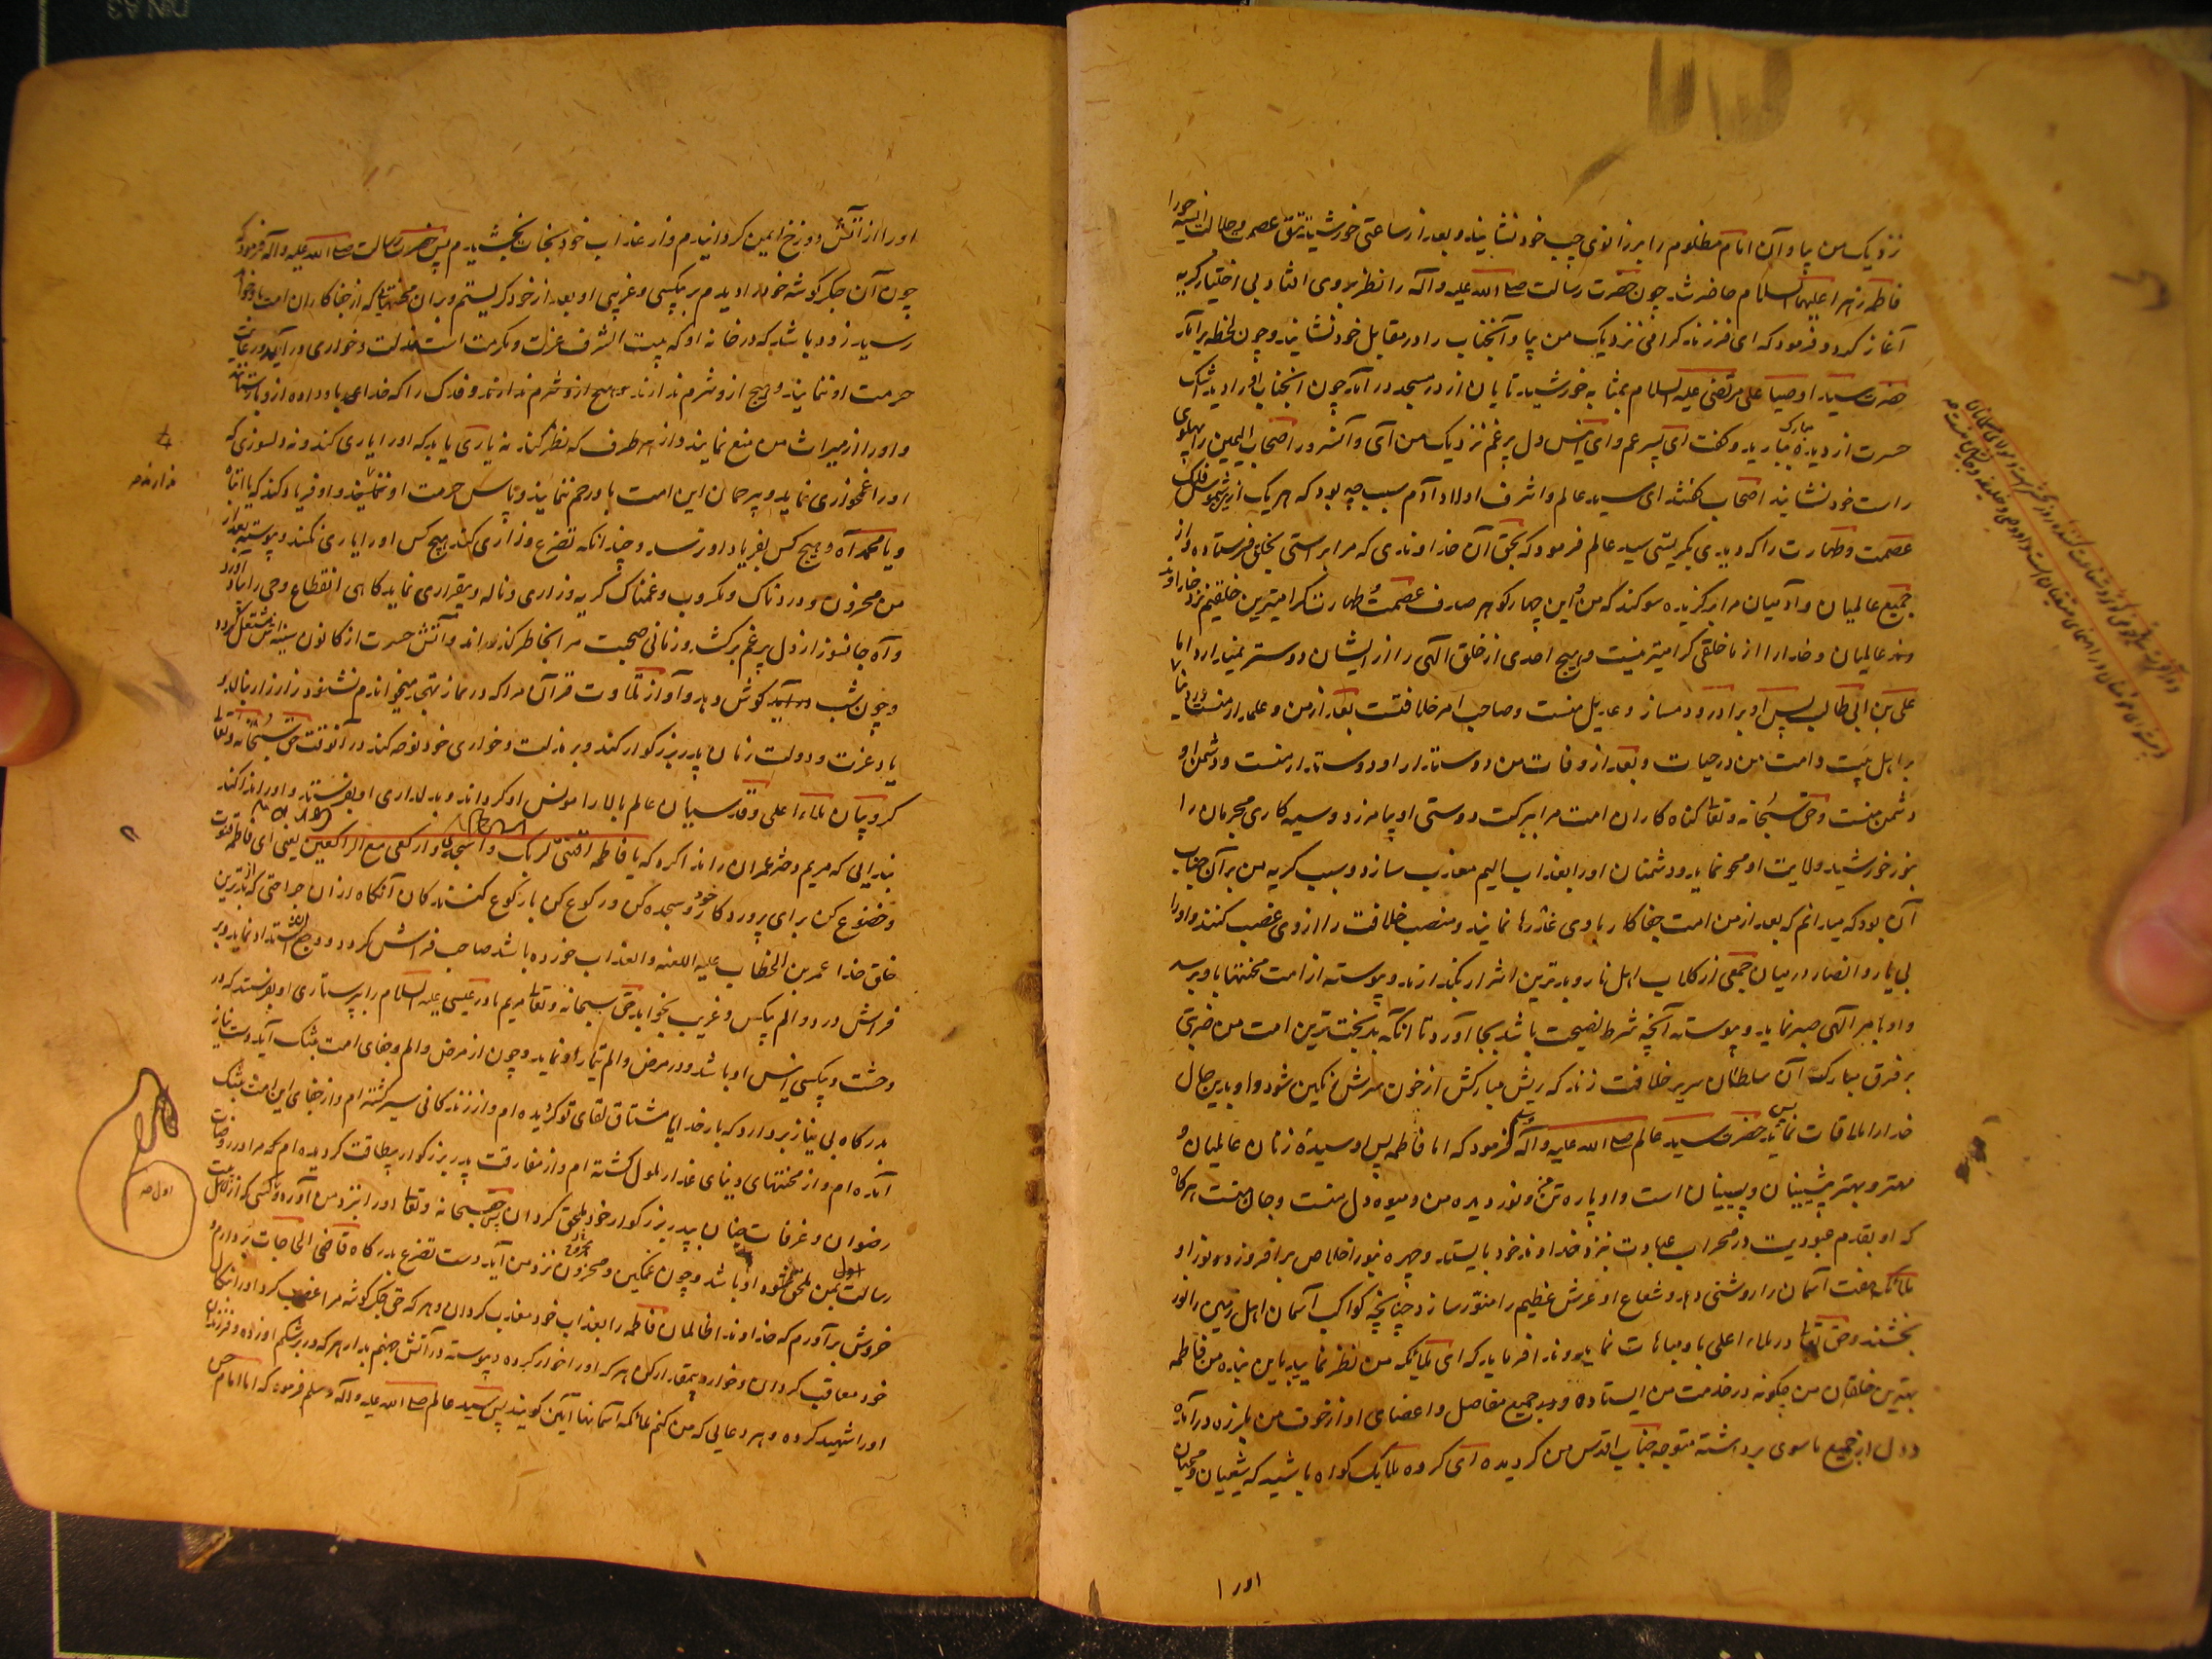 نزدیک من بیا و آن امام مظلوم را بر زانوی چپ خود نشانید و بعد از ساعتی خورشید تتق عصمت و جلالت انسیه حورا
فاطمه زهرا علیها السلام حاضر شد چون حضرت رسالت صلی الله علیه و آله را نظر بر وی افتاد بی اختیار گریه
آغاز کرد و فرمود که ای فرزند گرامی نزدیک من بیا و آنجناب را در مقابل خود نشانید و چون لحظه برآمد
حضرت سید اوصیا علی مرتضی علیه السلام بمثابه خورشید تابان از در مسجد درآمد چون آنجناب او را دید اشک
حسرت از دیده مبارک ببارید و گفت ای پسر عم و ای انیس دل پر غم نزدیک من آی و آنسرور اصحاب الیمین را بپهلوی
راست خود نشانید اصحاب گفتند ای سید عالم و اشرف اولاد آدم سبب چه بود که هر یک ازین شموس فلک
عصمت و طهارت را که دیدی بگریستی سید عالم فرمود که بحق آن خداوندی که مرا براستی بخلق فرستاده و از
جمیع عالمیان و آدمیان مرا برگزیده سوگند که من و این چهار گوهر صدف عصمت و طهارت گرامیترین خلقیم نزد خداوند
عالمیان و خدا را از ما خلقی گرامیتر نیست و هیچ احدی از خلق الهی را از ایشان دوستر نمیدارد اما
علی بن ابی طالب پس او برادر و دمساز و عدیل منست و صاحب امر خلافتست بعد از من و علمدار منست در دنیا
بر اهل بیت و امت من در حیات و بعد از وفات من دوستدار او دوستدار منست و دشمن او
دشمن منست و حق سبحانه و تعالی گناه کاران امت مرا ببرکت دوستی او بیامرزد و سیه کاری مجرمان را
بنور خورشید ولایت او محو نماید و دشمنان او را بعذاب الیم معذب سازد و سبب گریه من بر آن جناب
آن بود که میدانم که بعد از من امت جفا کار با وی غدرها نمایند و منصب خلافت را از وی غصب کنند و او را
بی یار و انصار در میان جمعی از کلاب اهل نار و بدترین اشرار بگذارند و پیوسته از امت محنتها باو برسد
و او بامر الهی صبر نماید و پیوسته آنچه شرط نصیحت باشد بجا آورد تا آنکه بدبخت ترین امت من ضربتی
بر فرق مبارک آن سلطان سریر خلافت زند که ریش مبارکش از خون سرش رنگین شود و او باین حال
خدا را ملاقات نماید پس حضرت سید عالم صلی الله علیه و آله وسلم فرمود که اما فاطمه پس او سیده زنان عالمیان و
مهتر و بهتر پیشینیان و پسینیان است و او پاره تن من و نور دیده من و میوه دل منست و جان منست هرگاه
که او بقدم عبودیت در محراب عبادت نزد خداوند خود بایستد و چهره بنور اخلاص برافروزد نور او
ملائکه هفت آسمان را روشنی دهد و شعاع او عرش عظیم را منور سازد چنانچه کواکب آسمان اهل زمین را نور
بخشند و حق تعالی در ملاء اعلی باو مباهات نماید و ندا فرماید که ای ملایکه من نظر نمایید باین بنده من فاطمه
بهترین خلقان من چگونه در خدمت من ایستاده و جمیع مفاصل و اعضای او از خوف من بلرزه درآمده
و دل از جمیع ماسوی برداشته متوجه جناب اقدس من گردیده ای گروه ملایک گواه باشید که شیعیان و محبان
او را
او را از آتش دوزخ ایمن گردانیدم و از عذاب خود نجات بخشیدم پس حضرت رسالت صلی الله علیه و آله فرمود که
چون آن جگرگوشه خود را دیدم بر بیکسی و غریبی او بعد از خود گریستم و بر آن محنتها که از جفا کاران امت باو خواهد
رسید زود باشد که در خانه او که بیت الشرف عزت و مکرمت است مذلت و خواری درآید و رعایت
حرمت او ننمایند و هیچ ازو شرم ندارند و هیچ ازو شرم ندارند و فدک را که خدای باو داده ازو بازستانند
و او را از میراث من منع نمایند و از هر طرف که نظر کند نه یاری یابد که او را یاری کند و نه دلسوزی که
او را غمخواری نماید و بیرحمان این امت باو رحم ننمایند و پاس حرمت او ننمایند و او فریاد کند که یا ابتاه
و یا محمداه و هیچ کس بفریاد او نرسد و چندانکه تضرع و زاری کند هیچ کس او را یاری نکند و پیوسته بعد از
من محزون و دردناک و مکروب و غمناک گریه و زاری و ناله و بیقراری نماید گاهی انقطاع وحی را بیاد آورد
و آه جانسوز از دل پر غم برکشد و زمانی صحبت مرا بخاطر گذراند و آتش حسرت از کانون سینه اش مشتعل گردد
و چون شب درآید گوش دهد و آواز تلاوت قرآن مرا که در نماز تهجد میخواندم نشنود زار زار بنالد و
یاد عزت و دولت زمان پدر بزرگوار کند و بر مذلت و خواری خود نوحه کند در آنوقت حق سبحانه و تعالی
کروبیان ملاء اعلی و قدسیان عالم بالا را مونس او گرداند و بدلداری او بفرستد و او را ندا کند
بندایی که مریم دختر عمران را ندا کرد که یا فاطمه اقنتی لربک واسجدی وارکعی مع الراکعین یعنی ای فاطمه قنوت
و خضوع کن برای پروردگار خود و سجده کن و رکوع کن با رکوع کنندگان آنگاه از آن جراحتی که از بدترین
خلق خدا عمر بن الخطاب علیه اللعنه و العذاب خورده باشد صاحب فراش گردد و وجع اشتداد نماید و بر
فراش درد و الم بیکس و غریب بخوابد حق سبحانه و تعالی مریم مادر عیسی علیه السلام را بپرستاری او بفرستد که در
وحشت و بیکسی انیس او باشد و در مرض و الم تیمار او نماید و چون از مرض و الم و جفای امت بتنگ آید دست نیاز
بدرگاه بی نیاز بردارد که بار خدایا مشتاق لقای تو گردیده ام و از زندگانی سیر گشته ام و از جفای این امت بتنگ
آمده ام و از محنتهای دنیای غدار ملول گشته ام و از مفارقت پدر بزرگوار بیطاقت گردیده ام مرا در روضات
رضوان و غرفات جنان بپدر بزرگوار خود ملحق گردان پس حق سبحانه و تعالی او را نزد من آورد و کسی که از اهل بیت
رسالت اول بمن ملحق شود او باشد و چون غمگین و محزون نزد من آید دست تضرع بدرگاه قاضی الحاجات بردارم و
خروش برآورم که خداوندا ظالمان فاطمه را بعذاب خود معذب گردان و هر که حق جگرگوشه مرا غصب کرد او را بنکال
خود معاقب گردان و خوار و بیمقدار کن هر که او را خوار کرده و پیوسته در آتش جهنم بدار هر که در بر شکم او زده و فرزند
او را شهید کرده و هر دعایی که من کنم ملائکه آسمانها آمین گویند پس سید عالم صلی الله علیه و آله وسلم فرمود که اما امام حسن